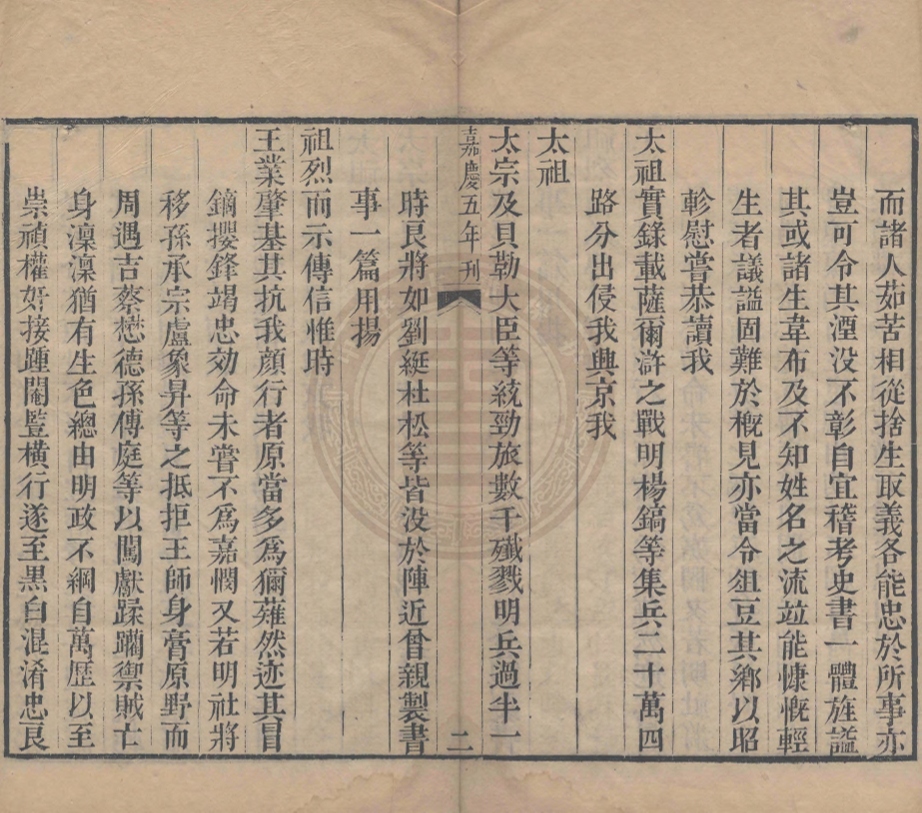 而諸人茹苦相從捨生取義各能忠於所事亦
豈可令其湮没不彰自宜稽考史書一體旌諡
其或諸生韋布及不知姓名之流竝能慷慨輕
生者議諡固難於概見亦當令俎豆其鄉以昭
軫慰嘗恭讀我
太祖實錄載薩爾滸之戰明楊鎬等集兵二十萬四
路分出侵我興京我
太祖
太宗及貝勒大臣等統勁旅數千殲戮明兵過半一
嘉慶五年刊
二
時良將如劉綎杜松等皆没於陣近曾親製書
事一篇用揚
祖烈而示傳信惟時
王業肇基其抗我顏行者原當多爲獮薙然迹其冒
鏑攖鋒竭忠効命未嘗不爲嘉憫又若明社將
移孫承宗盧象昇等之抵拒王師身膏原野而
周遇吉蔡懋德孫傳庭等以闖獻蹂躪禦賊亡
身凜凜猶有生色總由明政不綱自萬歷以至
崇禎權奸接踵閹豎橫行遂至黑白混淆忠良